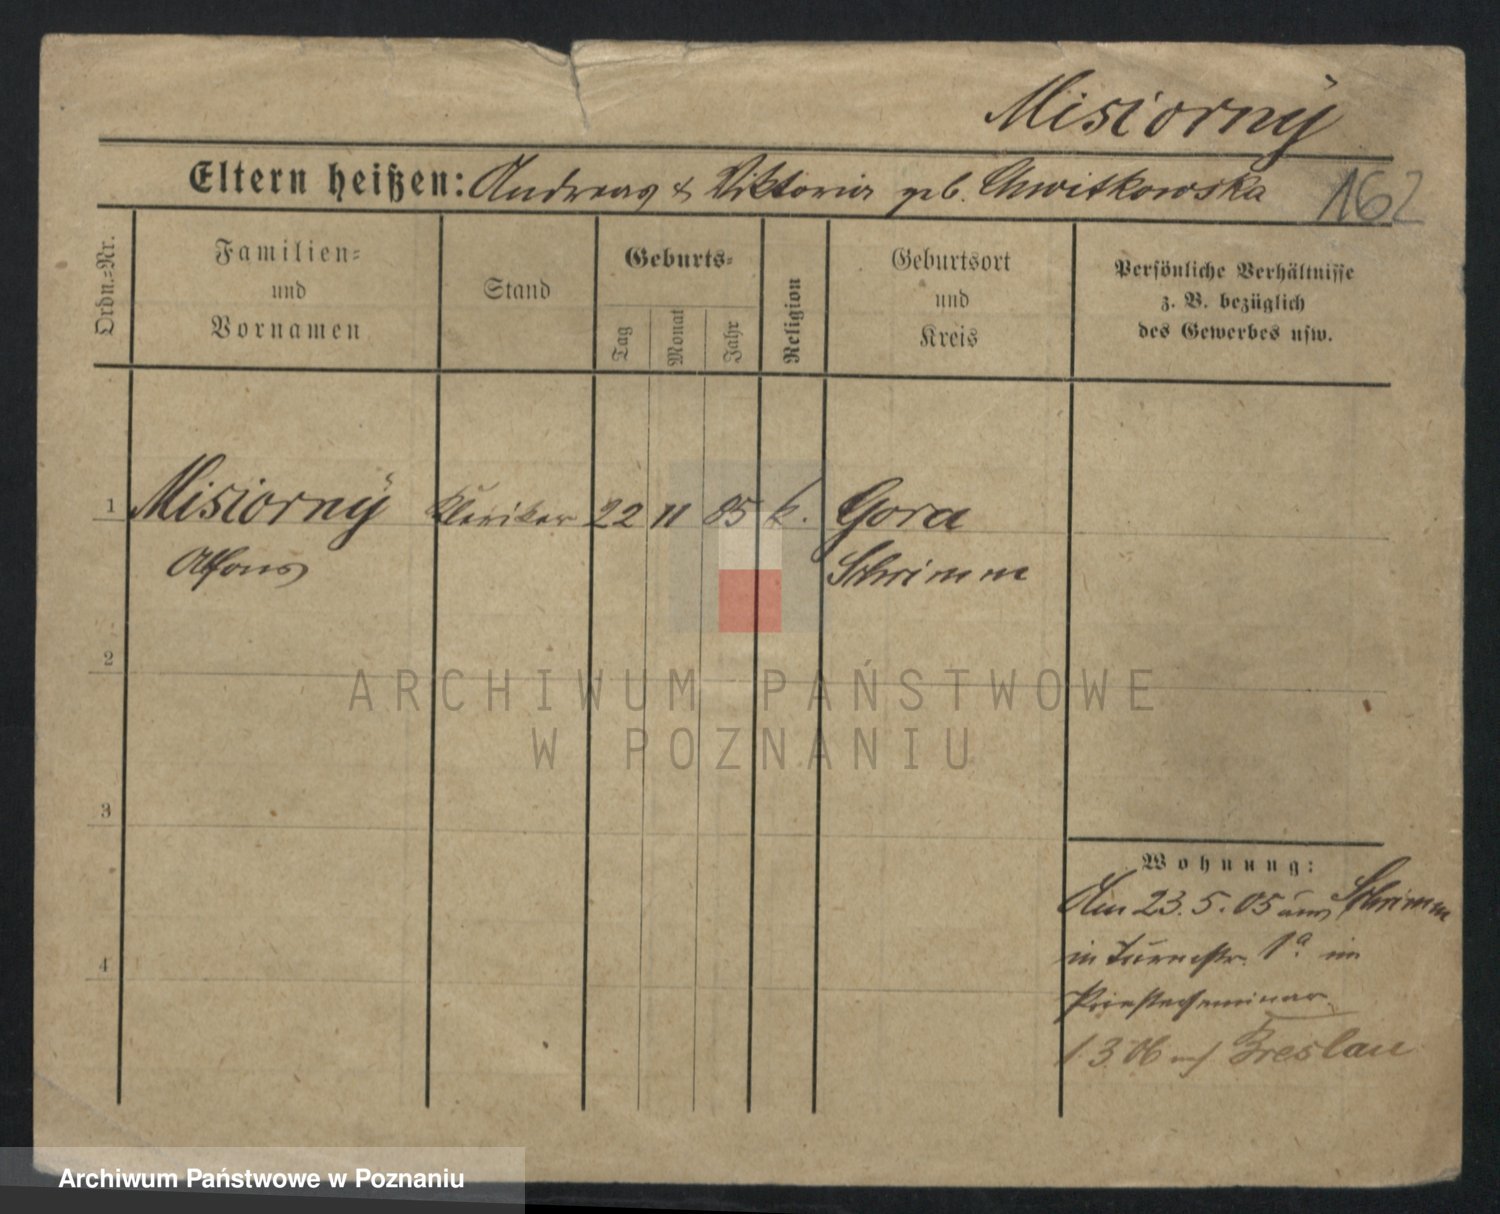 Misiorny
Eltern heißen: Andreas & Viktoria geb. Chwitkowska 162
Ordn.-Nr.
Familien-
und
Vornamen
Stand
Geburts-
Tag
Monat
Jahr
Religion
Geburtsort
und
Kreis
Persönliche Verhältnisse
z. B. bezüglich
des Gewerbes usw.
1 Misiorny Kleriker 22 11 85 k. Gora
Alfons Schrimm
2
ARCHIWUM PAŃSTWOWE
W POZNANIU
3
Wohnung:
Am 23.5.05 aus Schrimm
4 in Turmstr. 1a im
Priesterseminar
1 3 06 nach Breslau
Archiwum Państwowe w Poznaniu